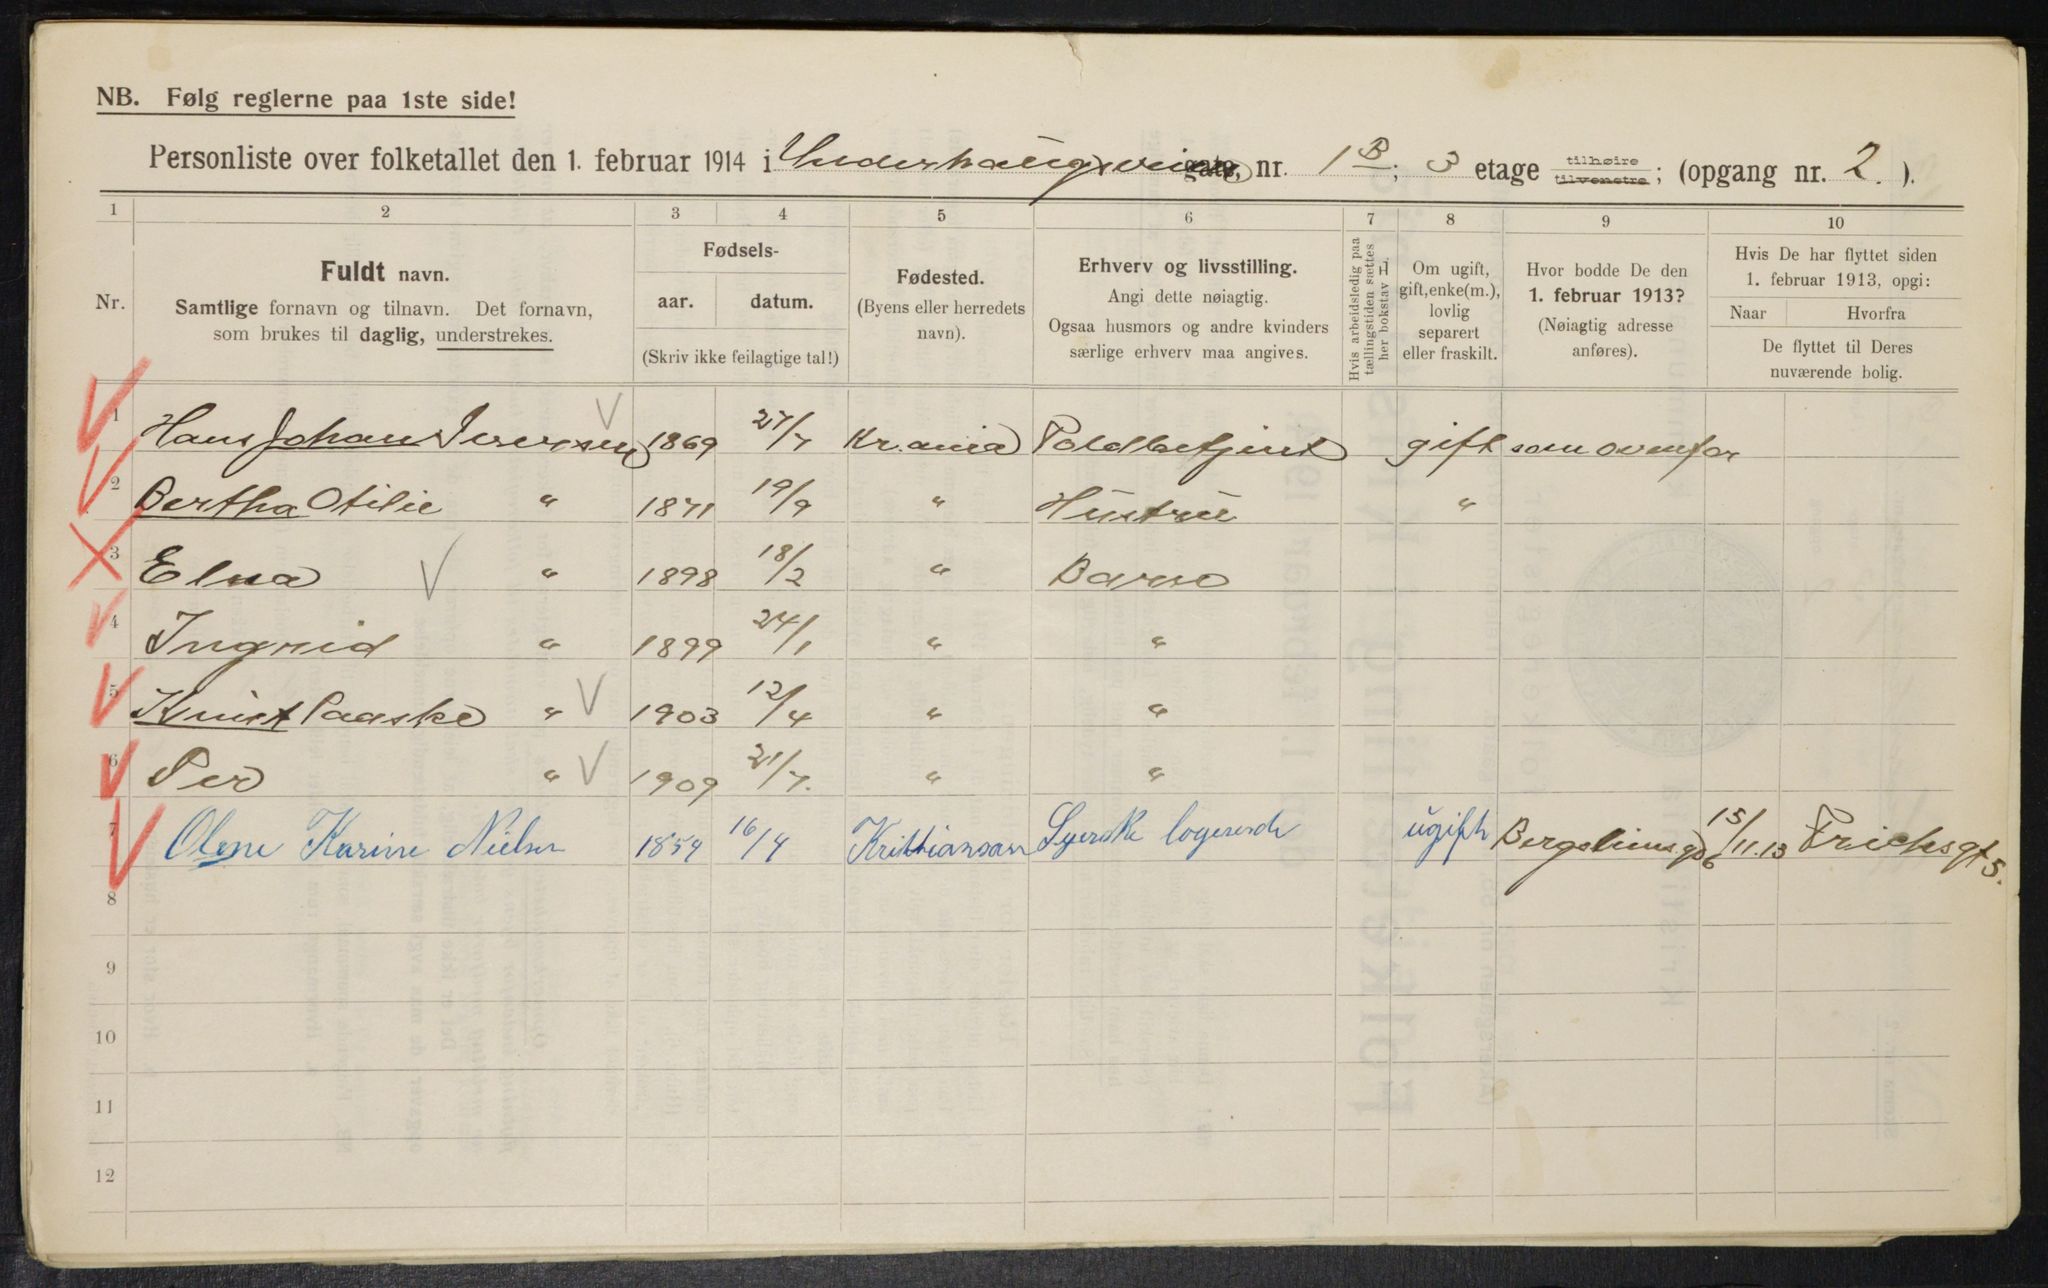 NB. Følg reglerne paa 1ste side!
Personliste over folketallet den 1. februar 1914 i Underhaugsveien gate, nr. 1 B; 3 etage tilhøire tilvenstre; (opgang nr. 2.).
1 2 3 4 5 6 7 8 9 10
Nr.
Fuldt navn.
Samtlige fornavn og tilnavn. Det fornavn,
som brukes til daglig, understrekes.
Fødsels-
aar. datum.
(Skriv ikke feilagtige tal!)
Fødested.
(Byens eller herredets
navn).
Erhverv og livsstilling.
Angi dette nøiagtig.
Ogsaa husmors og andre kvinders
særlige erhverv maa angives.
Hvis arbeidsledig paa
tællingstiden sættes
her bokstav H.
Om ugift,
gift, enke(m.),
lovlig
separert
eller fraskilt.
Hvor bodde De den
1. februar 1913?
(Nøiagtig adresse
anføres).
Hvis De har flyttet siden
1. februar 1913, opgi:
Naar Hvorfra
De flyttet til Deres
nuværende bolig.
1 Hans Johan Iversen 1869 27/7 Kr.ania Toldbetjent gift som ovenfor
2 Bertha Otilie " 1871 19/9 " Hustru "
3 Elna " 1898 18/2 " Barn
4 Ingrid " 1899 24/1 " "
5 Knut Paaske " 1903 12/4 " "
6 Per " 1909 21/7. " "
7 Olene Karine Nielsen 1854 16/4 Kristiansan Syerske logerende ugift Bergeliensgd 6 15/11.13 Frichsgt 5.
8
9
10
11
12